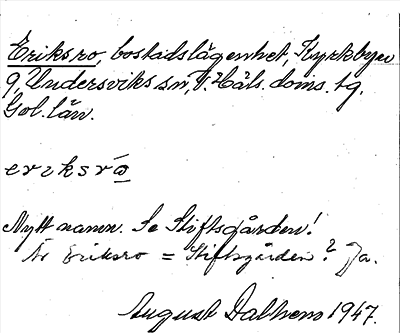 Eriksro, bostadslägenhet, Kyrkbyn
9, Undersviks sn, V. Häls. doms. tg.
Gvl. län.
eriksrò
Nytt namn. Se Stiftsgården!
Är Eriksro = Stiftsgården? Ja.
August Dalhem 1947.